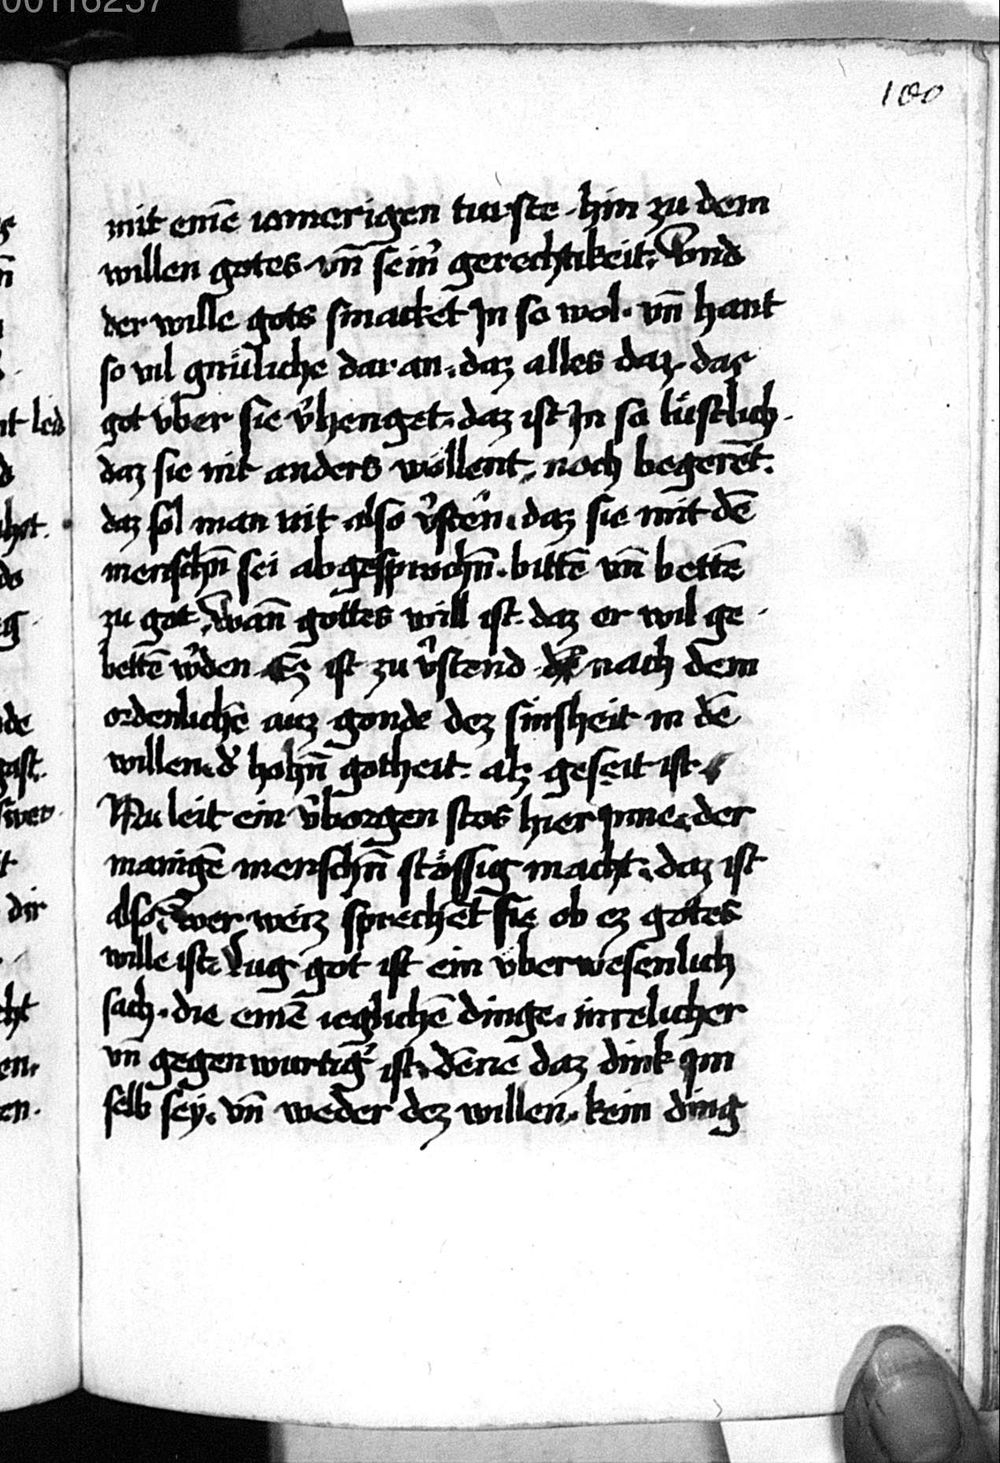 00116257
100
mit eine̅ iamerigen turste · hin zu dem
willen gotes · vn̅ sein̛ gerechtikeit · Vnd
der wille gots smacket In so wol · vn̅ hant
so vil gnu̇liche dar an · daz alles daz · daz
got vber sie v̛henget · daz ist In so lu̇stlich ·
daz sie nit anders wo̊llent · noch begere̅t ·
daz sol man nit also v̛sten · daz sie mit de̅
menschn̅ sei abgesprochn̅ · bitte̅ vn̅ bette̅
zu got wan̅ gottes will ist · daz er wil ge ·
bette̅ w̛den · Ez ist zu v̛stend nach dem
ordenliche̅ auz gonde dez sinsheit in de̅
willen · d̛ hohn̅ gotheit · alz geseit ist
Nu leit ein v̛borgen stos hier Inne · der
manige̅ menschn̅ sto̊ssig macht · daz ist
also · wer weiz spreche̅t sie ob ez gotes
wille ist · Lug got ist ein vberwesenlich
sach · die eine̅ iegliche̅ dinge · inrelicher
vn̅ gegenwurtig̛ ist · de̅ne daz dink Im
selb sey · vn̅ weder dez willen · kein ding